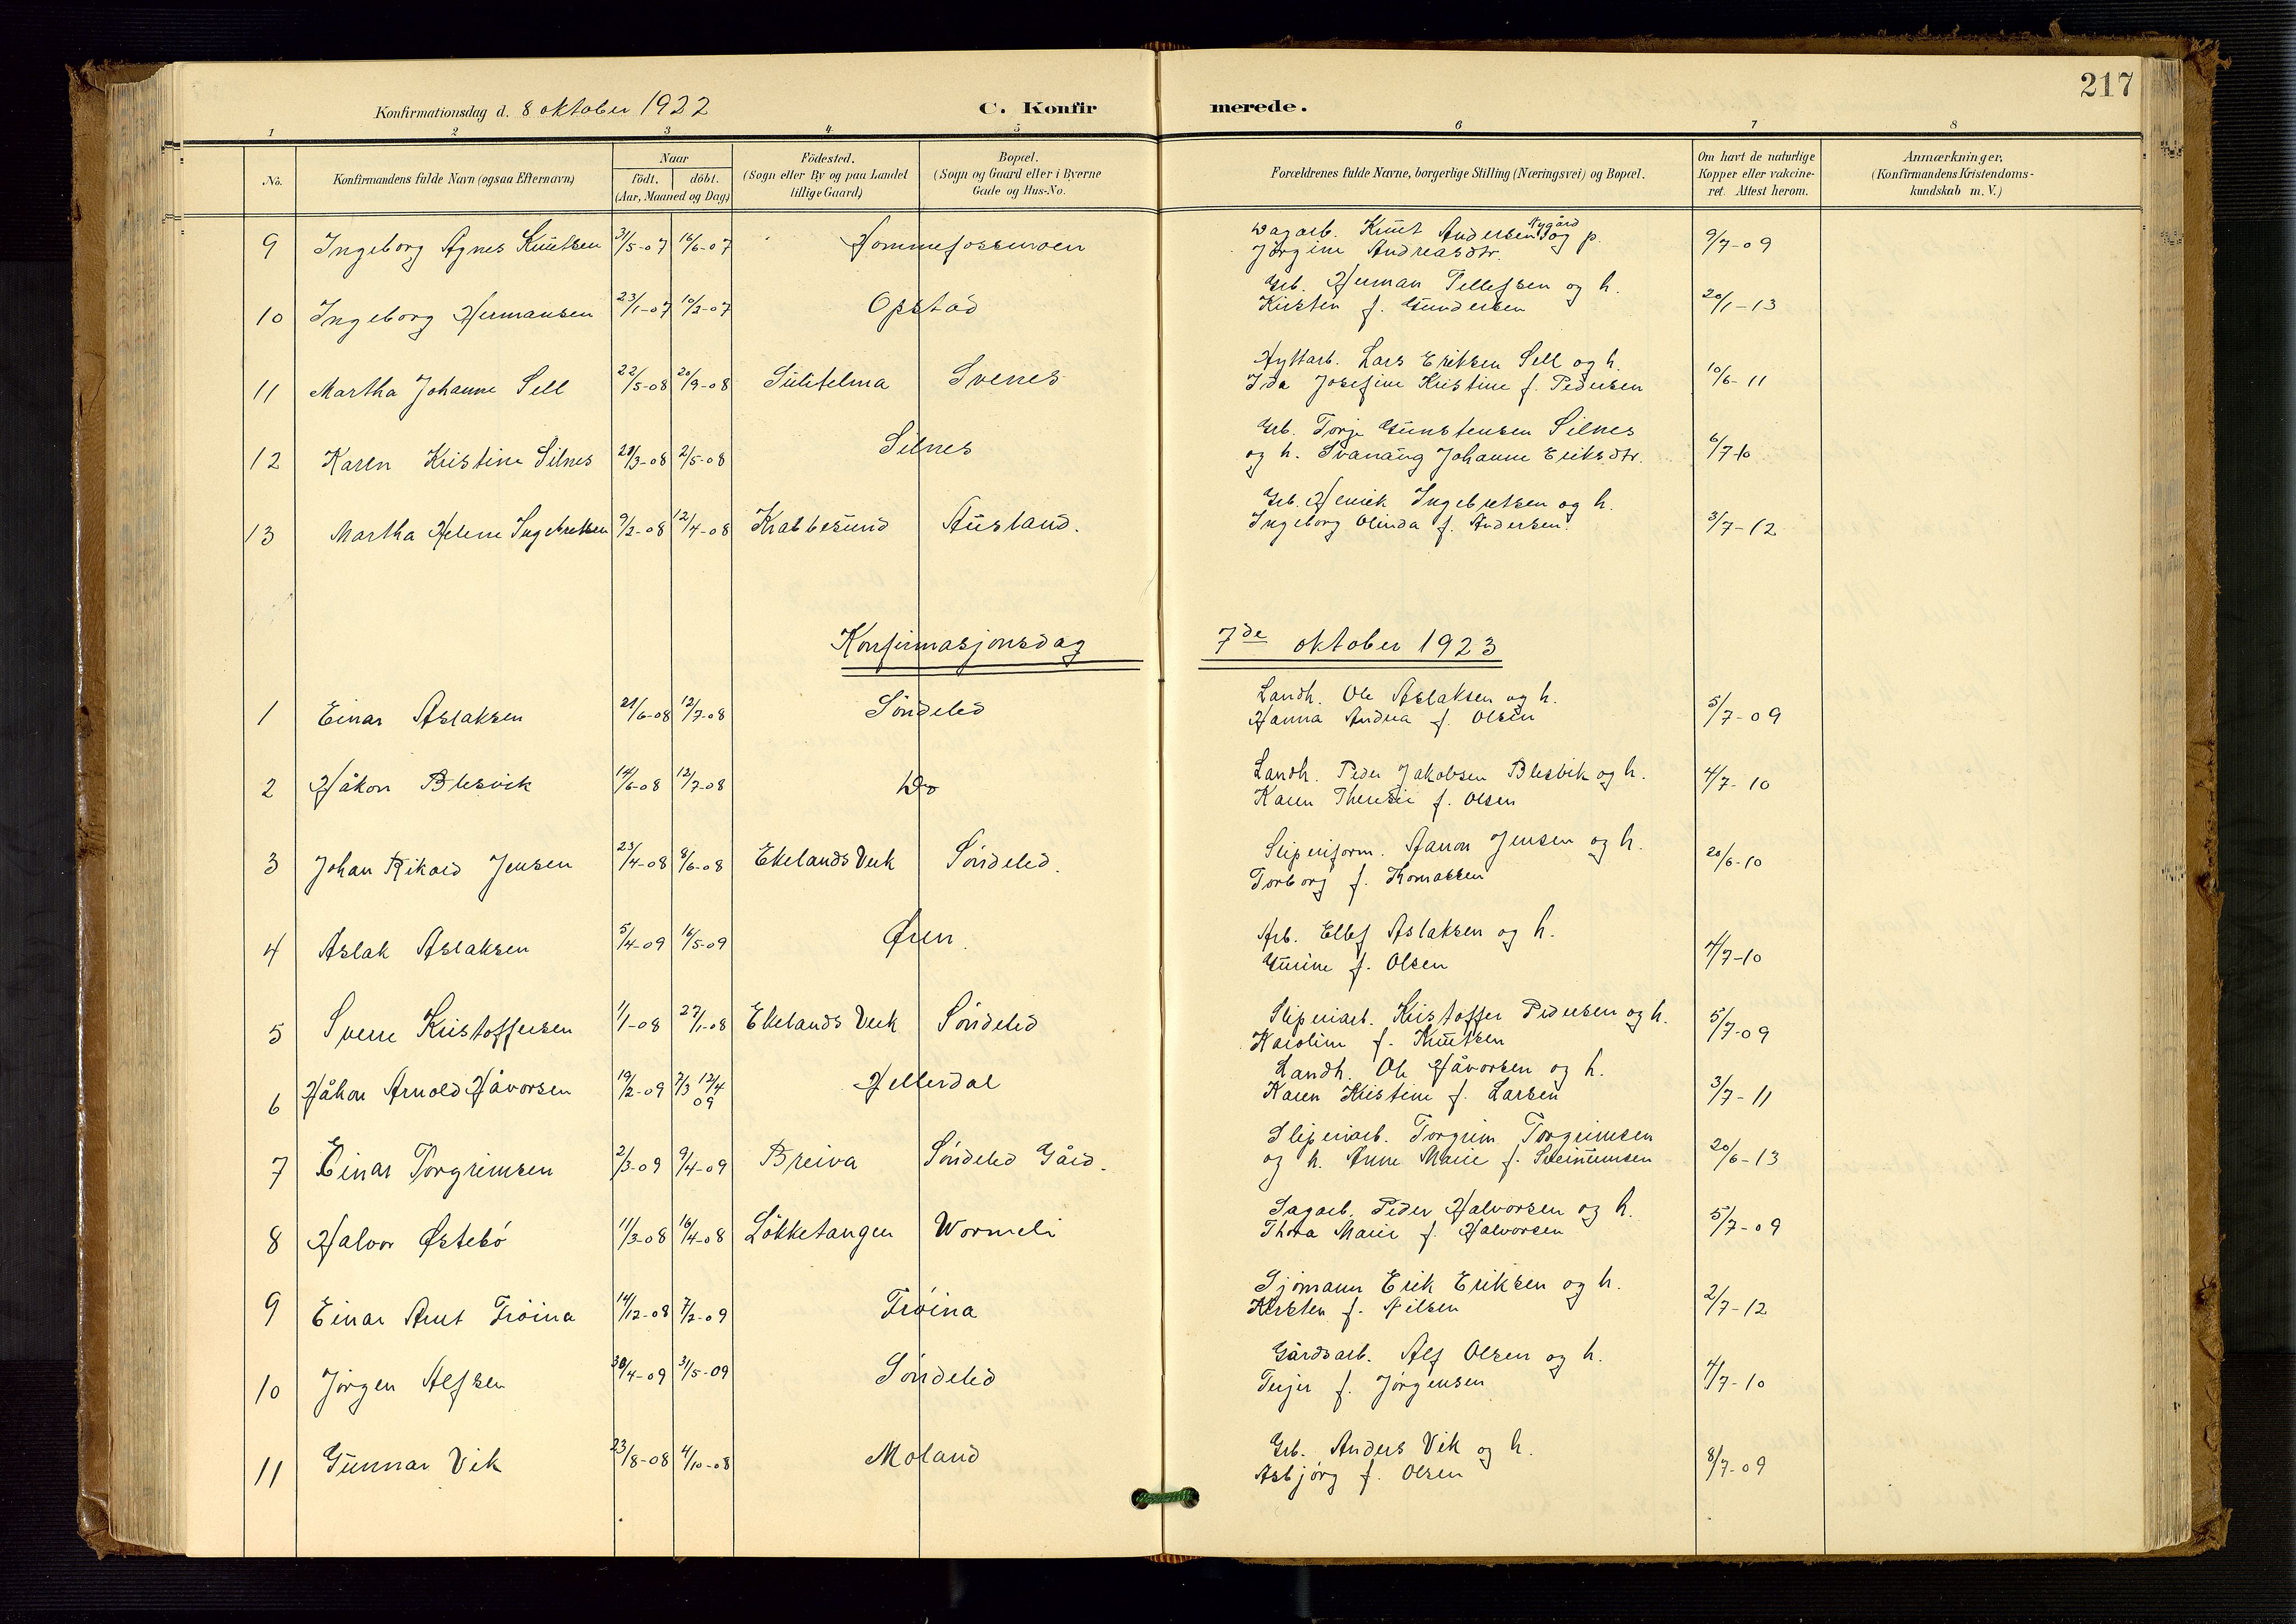 217
Konfirmationsdag d. 8 oktober 1922 C. Konfirmerede.
1 2 3 4 5 6 7 8
No. Konfirmandens fulde Navn (ogsaa Efternavn) Naar födt. döbt. (Aar, Maaned og Dag) Födested. (Sogn eller By og paa Landet tillige Gaard) Bopæl. (Sogn og Gaard eller i Byerne Gade og Hus-No. Forældrenes fulde Navne, borgerlige Stilling (Næringsvei) og Bopæl. Om havt de naturlige Kopper eller vaccineret. Attest herom. Anmærkninger, (Konfirmandens Kristendomskundskab m. V.)
9 Ingeborg Agnes Knutsen 31/5-07 16/6-07 Hommefossmoen Dagarb. Knut Andersen Nygård og p. 9/7-09
Jörgine Andreasdtr.
10 Ingeborg Hermansen 23/1-07 10/2-07 Opstad Grb. Herman Tellefsen og h. 20/1-13
Kirsten f. Gundersen
11 Martha Johanne Sell 22/5-08 20/9-08 Sulitelma Svenes Hyttarb. Lars Eriksen Sell og h. 10/6-11
Ida Josefine Kristine f. Pedersen
12 Karen Kristine Silnes 29/3-08 2/5-08 Silnes Grb. Torje Gunstensen Silnes 6/7-10
og h. Svanaug Johanne Eriksdtr.
13 Martha Helene Ingebretsen 9/2-08 12/4-08 Krabbesund Ausland. Grb. Henrik Ingebretsen og h. 3/7-12
Ingeborg Olinda f. Andersen.
Konfirmasjonsdag 7de oktober 1923
1 Einar Aslaksen 21/6-08 12/7-08 Söndeled Landh. Ole Aslaksen og h. 5/7-09
Hanna Andrea f. Olsen
2 Håkon Blesvik 14/6-08 12/7-08 Do Landh. Peder Jakobsen Blesvik og h. 4/7-10
Karen Theresie f. Olsen
3 Johan Rikard Jensen 23/4-08 8/6-08 Ekelands Verk Söndeled. Sliperiform. Aanon Jensen og h. 20/6-10
Torborg f. Thomassen
4 Aslak Aslaksen 5/4-09 16/5-09 Øren. Arb. Ellef Aslaksen og h. 4/7-10
Gurine f. Olsen
5 Sverre Kristoffersen 1/1-08 27/1-08 Ekelands Verk Söndeled Sliperiarb. Kristoffer Pedersen og h. 5/7-09
Karoline f. Knutsen
6 Håkon Arnold Håvorsen 19/2-09 7/3 12/4 09 Hellerdal Landh. Ole Håvorsen og h. 3/7-11
Karen Kristine f. Larsen
7 Einar Torgrimsen 2/3-09 9/4-09 Breiva Söndeled Gård. Sliperiarb. Torgrim Torgrimsen 20/6-13
og h. Anne Marie f. Steinumsen
8 Halvor Østebö 11/3-08 16/4-08 Lökketangen Wormeli Sagarb. Peder Halvorsen og h. 5/7-09
Thora Marie f. Halvorsen
9 Einar Arnt Fröina 14/12-08 7/2-09 Fröina Sjömann Erik Eriksen og h. 2/7-12
Kirsten f. Nilsen
10 Jörgen Alfsen 30/4-09 31/5-09 Söndeled Gårdsarb. Alf Olsen og h. 4/7-10
Terjer f. Jörgensen
11 Gunnar Vik 23/8-08 4/10-08 Moland Grb. Anders Vik og h. 8/7-09
Asbjörg f. Olsen